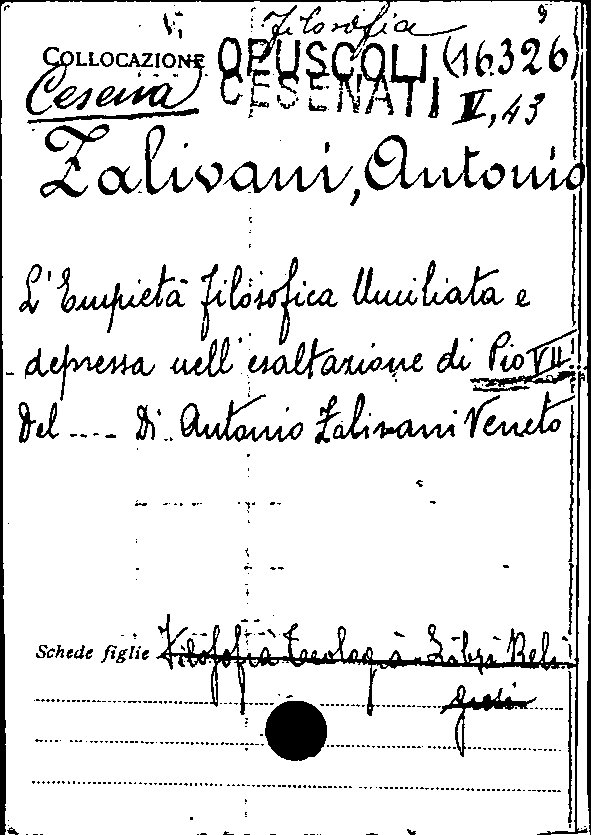 V. Filosofia 9
COLLOCAZIONE OPUSCOLI (16326)
Cesena CESENATI IV, 43
Zalivani, Antonio
L'Empietà filosofica Umiliata e
depressa nell'esaltazione di Pio VII
Del .... Di Antonio Zalivani Veneto
Schede figlie Filosofia Teologia - Libri Reli
giosi